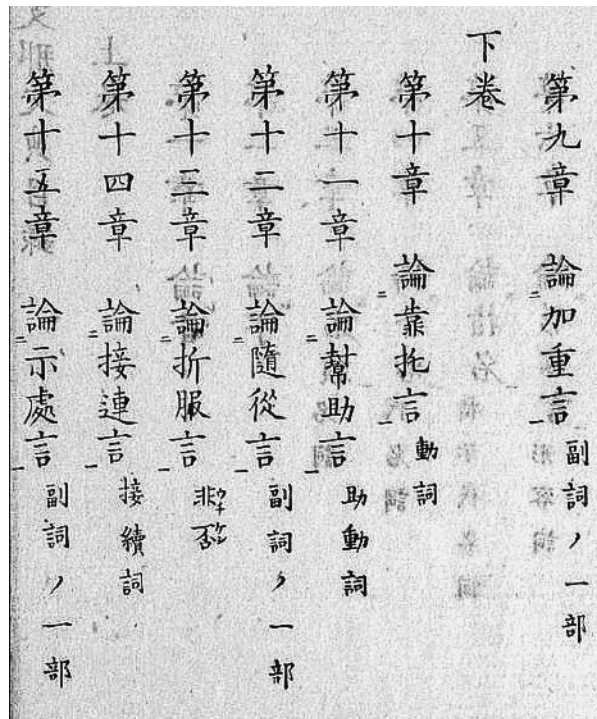 第九章 論加重言 副詞ノ一部
下卷
第十章 論靠托言 動詞
第十一章 論幫助言 助動詞
第十二章 論隨從言 副詞ノ一部
第十三章 論折服言 非否
第十四章 論接連言 接續詞
第十五章 論示處言 副詞ノ一部